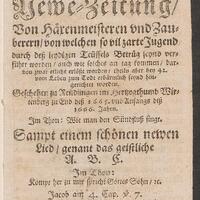 Newe-Zeitung/
Von Härenmeisteren vnd Zau-
berern/ von welchen so vil zarte Jugend
durch deß leydigen Teüffels Betrüg seynd ver-
führet worden/ auch wie solches an tag kommen/ dar-
von zwar etliche erlößt worden/ theils aber bey 42.
vom Leben zum Todt erbärmlich seynd hin-
gerichtet worden.
Geschehen zu Reidlingen im Hertzogthumb Wir-
tenberg zu End deß 1665. vnd Anfangs deß
1666. Jahrs.
Im Thon: Wie man den Sündtfluß singt.
Sampt einem schönen newen
Lied/ genant das geistliche
A. B. C.
Im Thon:
Kompt her zu mir spricht Gottes Sohn/ ꝛc.
Jacob am 4. Cap. ℣. 7.